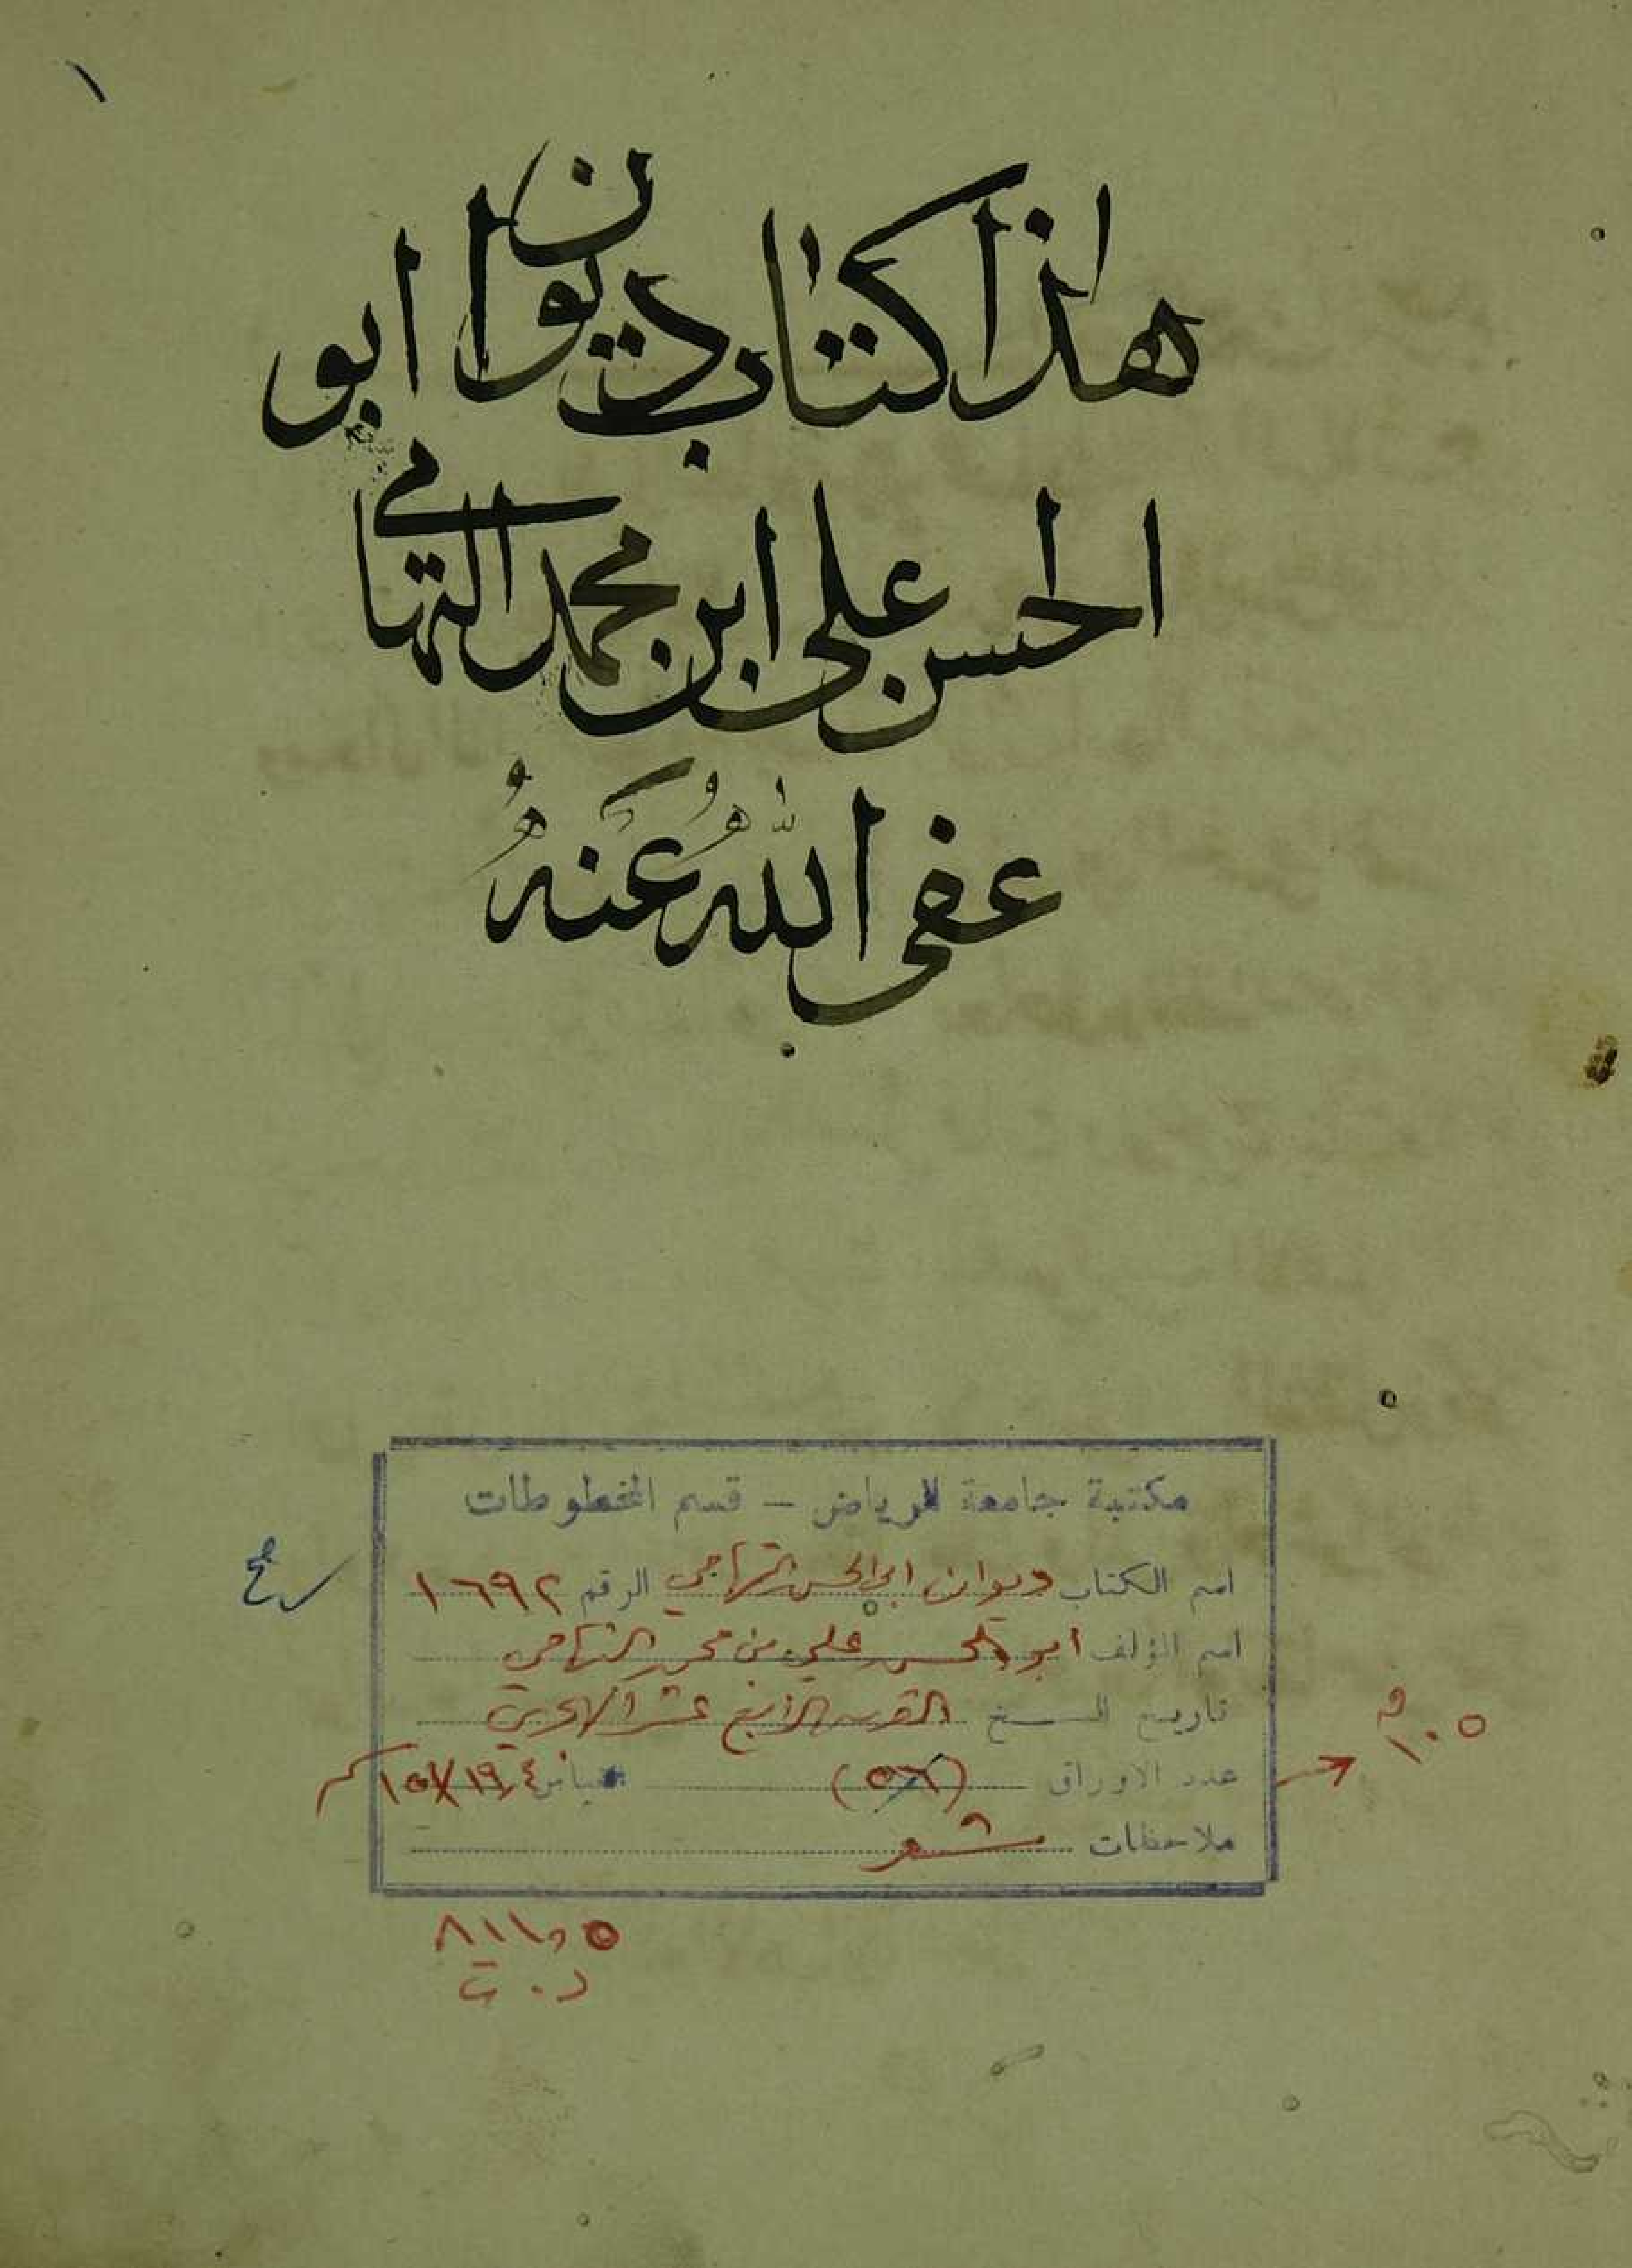 ١
هاذا كتاب ديوان ابو
الحسن على ابن محمد التهامي
عفى اللهُ عَنهُ
مكتبة جامعة الرياض - قسم المخطوطات
اسم الكتاب ديوان ابي الحسن التهامي الرقم ١٦٩٢
اسم المؤلف ابو الحسن علي بن محمد التهامي
تاريخ النسخ القرن الرابع عشر الهجري
عدد الاوراق (٥٦)
١٠٥ م
ملاحظات شعر
٨١١,٥
د. ت